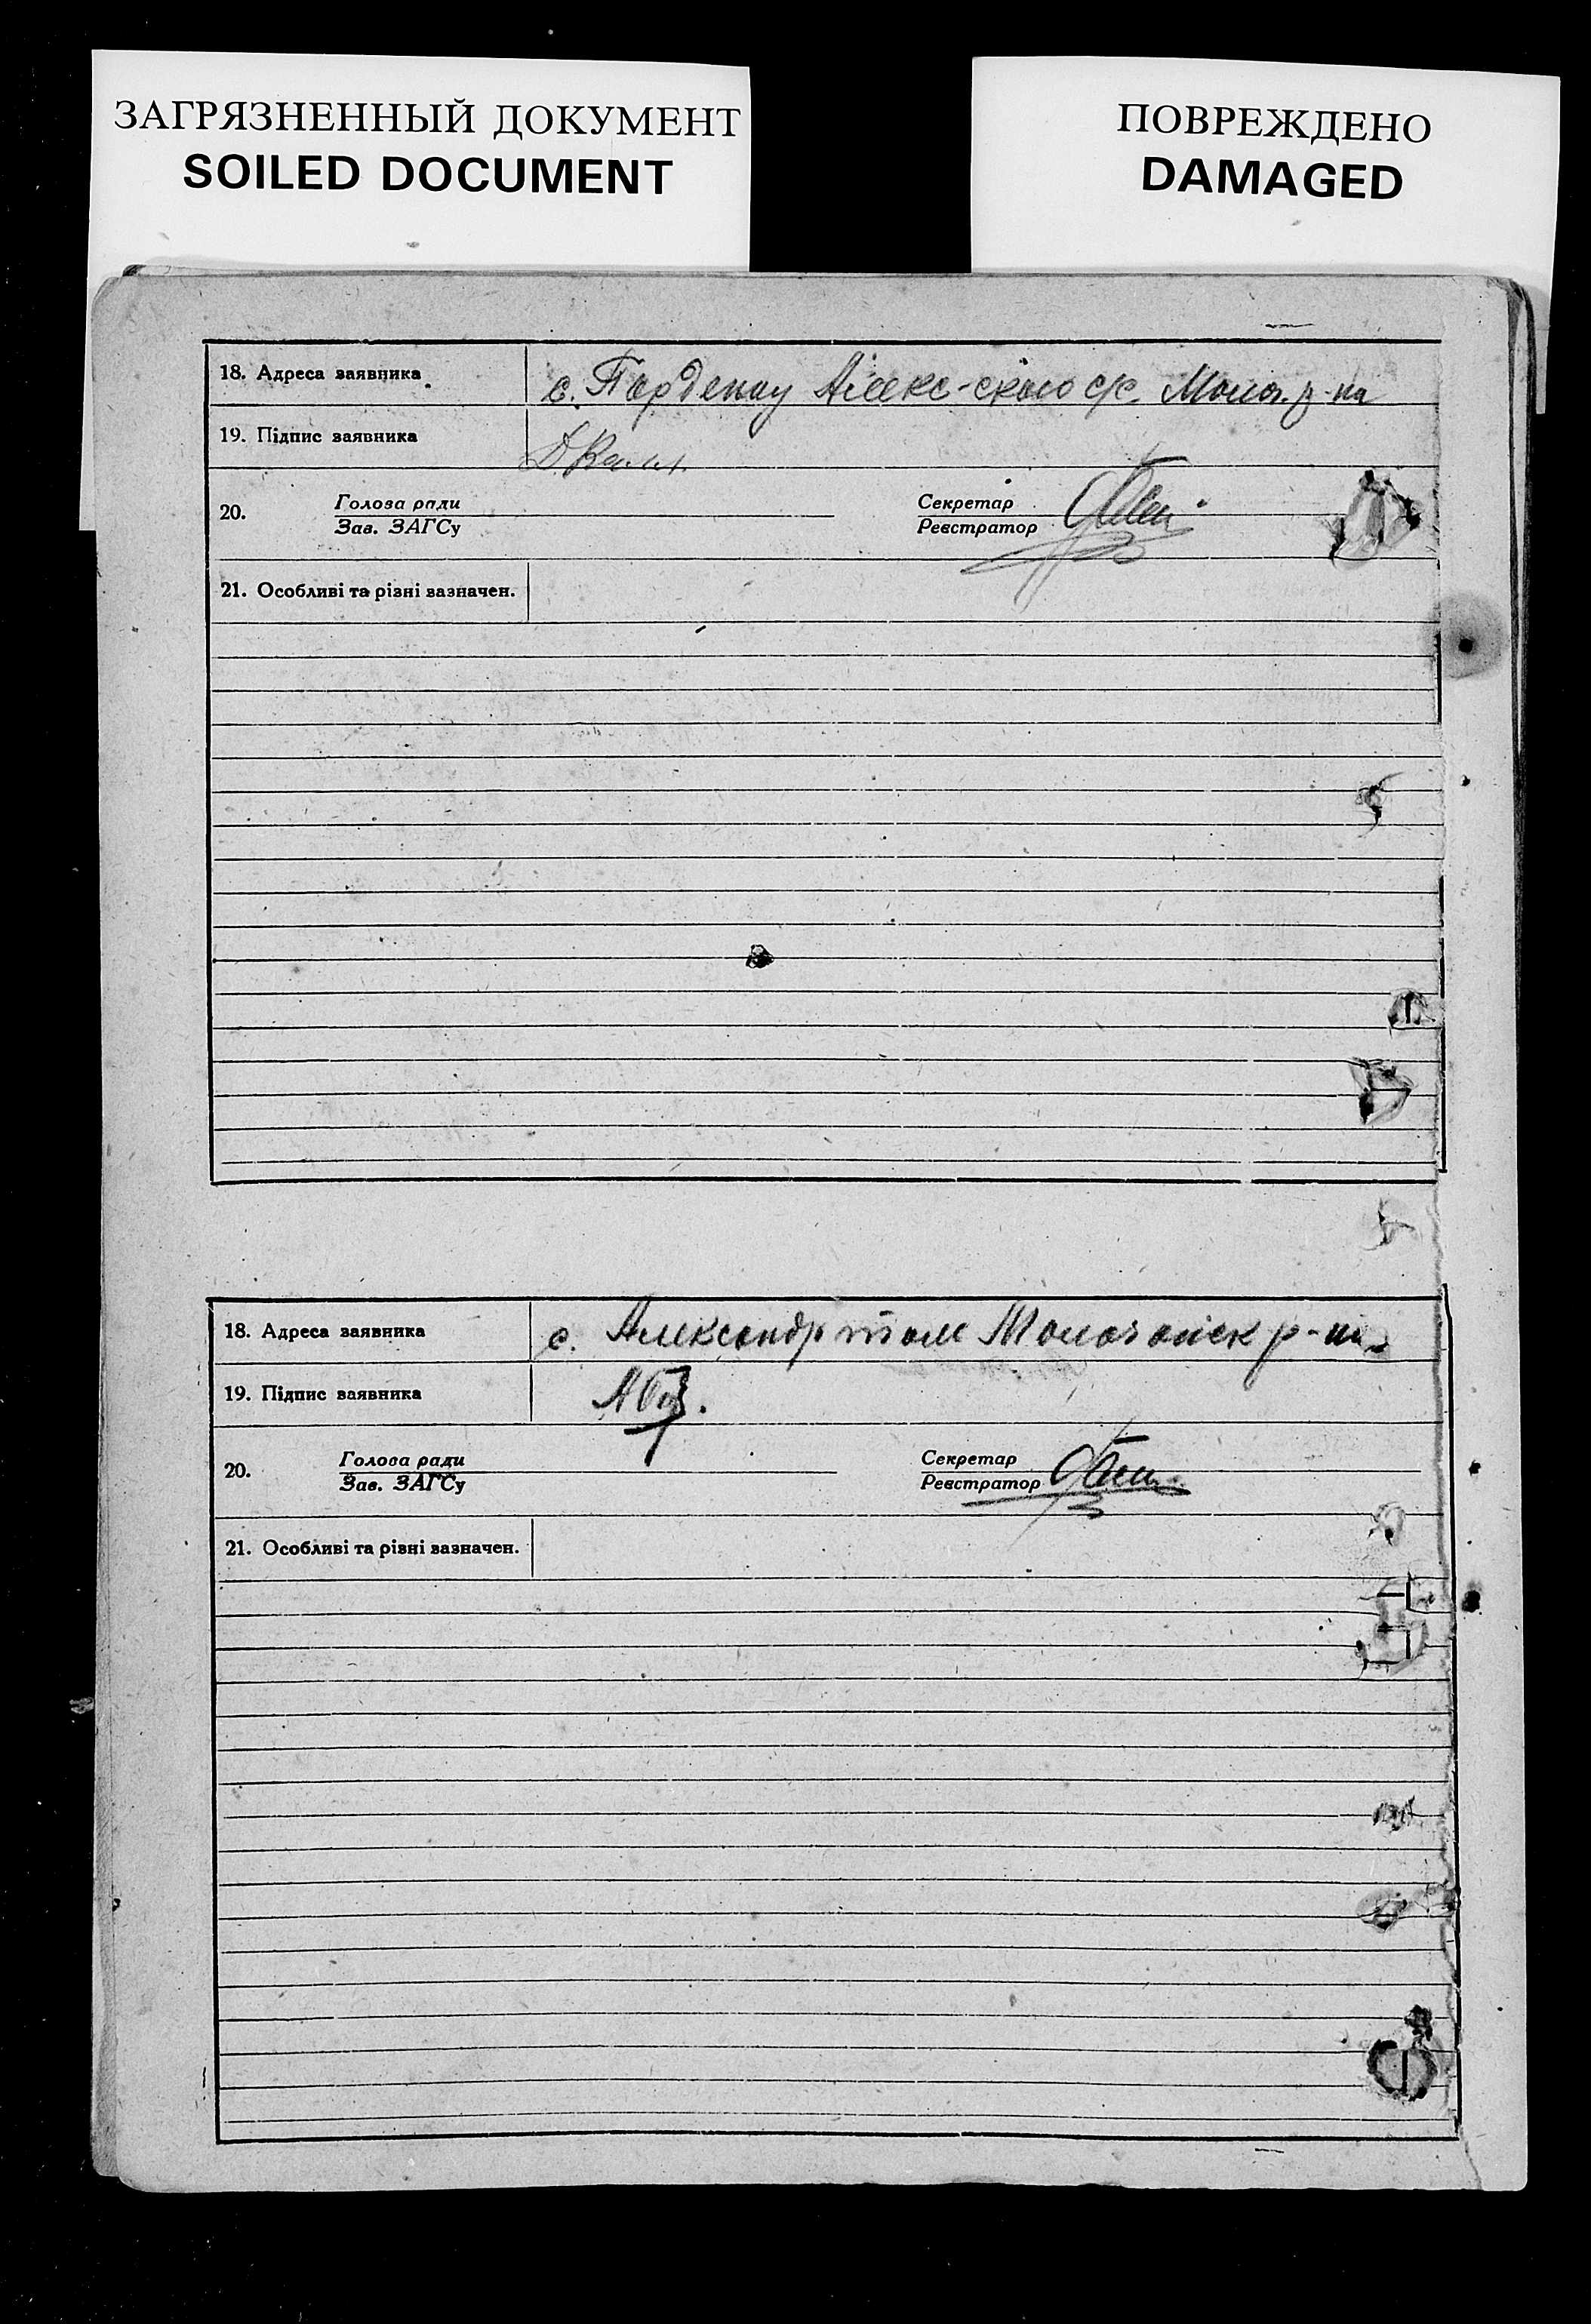 ЗАГРЯЗНЕННЫЙ ДОКУМЕНТ
SOILED DOCUMENT
ПОВРЕЖДЕНО
DAMAGED
18. Адреса заявника с. Парденау Алекс-ского с/с. Молоч. р-на
19. Підпис заявника
20. Голова ради
Зав. ЗАГСу
Секретар
Реєстратор
21. Особливі та різні зазначен.
18. Адреса заявника с. Александрталь Молочанск р-на
19. Підпис заявника
20. Голова ради
Зав. ЗАГСу
Секретар
Реєстратор
21. Особливі та різні зазначен.